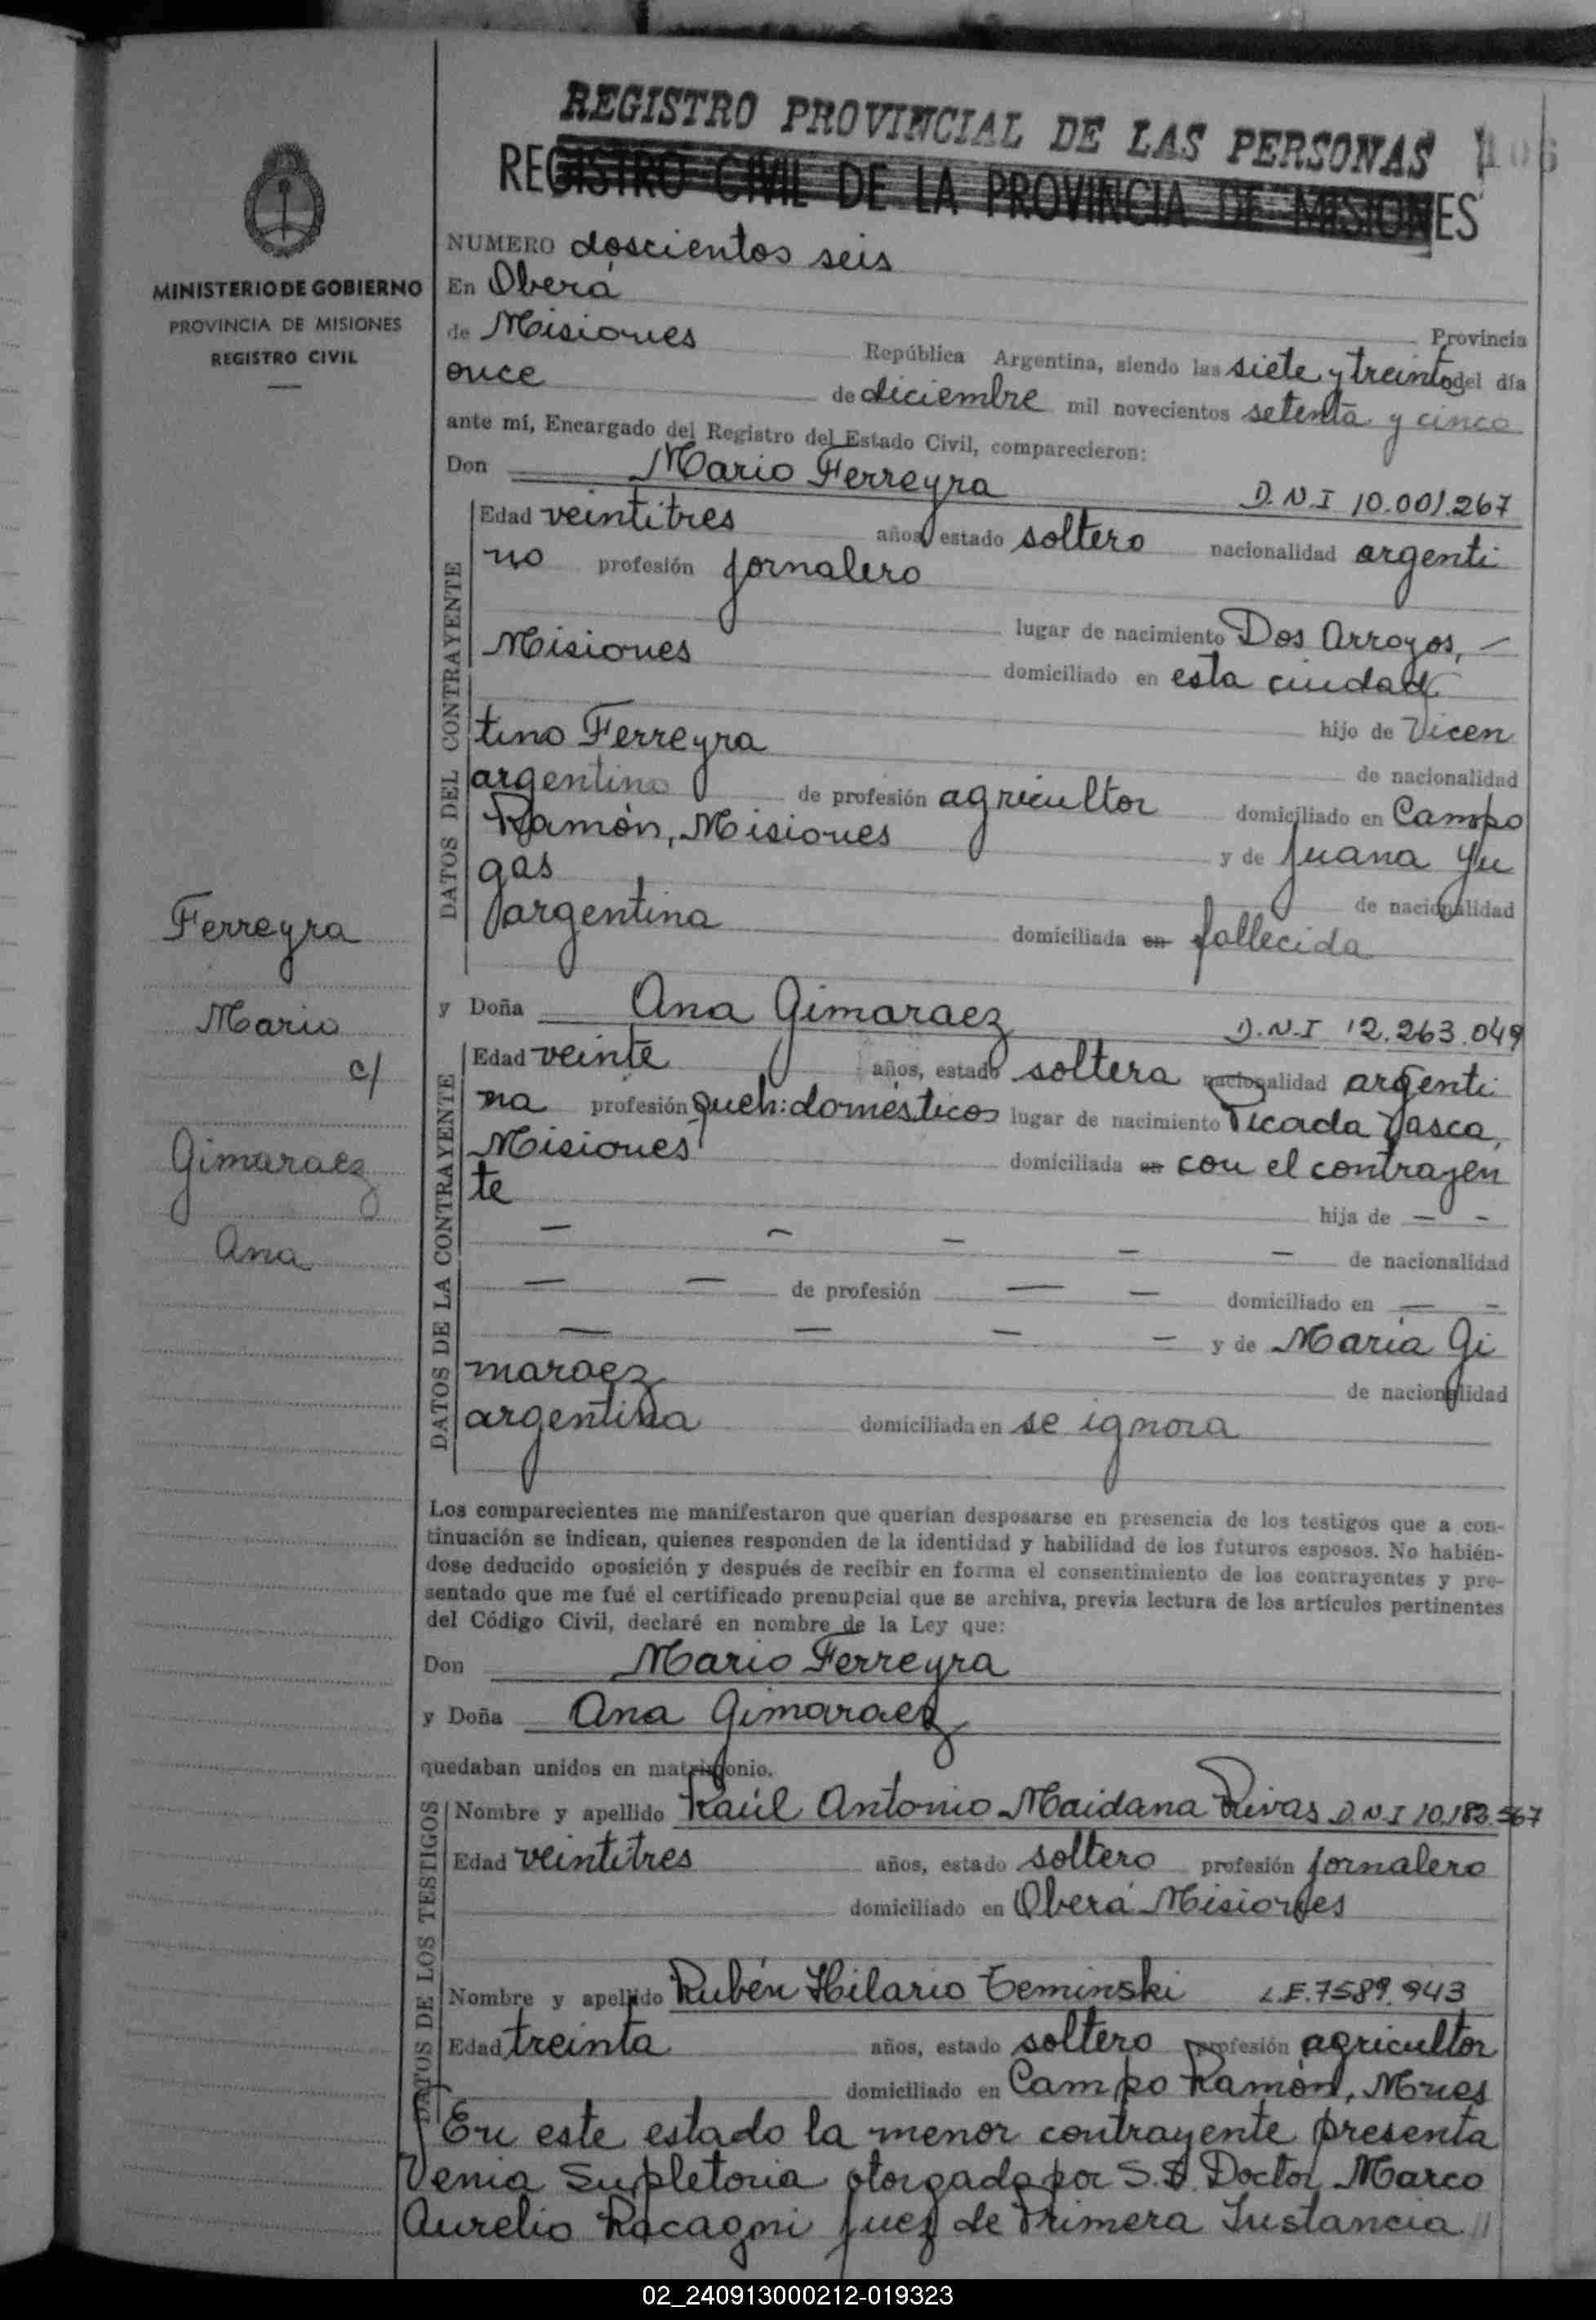 REGISTRO PROVINCIAL DE LAS PERSONAS
REGISTRO CIVIL DE LA PROVINCIA DE MISIONES
MINISTERIO DE GOBIERNO
PROVINCIA DE MISIONES
REGISTRO CIVIL
Ferreyra
Mario
c/
Gimaraez
Ana
NUMERO doscientos seis
En Oberá Provincia
de Misiones República Argentina, siendo las siete y treinta del día
once de diciembre mil novecientos setenta y cinco
ante mí, Encargado del Registro del Estado Civil, comparecieron:
Don Mario Ferreyra D.N.I 10.001.267
DATOS DEL CONTRAYENTE
Edad veintitres años, estado soltero nacionalidad argenti
no profesión jornalero
lugar de nacimiento Dos Arroyos, —
Misiones domiciliado en esta ciudad
hijo de Vicen
tino Ferreyra de nacionalidad
argentino de profesión agricultor domiciliado en Campo
Ramón, Misiones y de Juana Yu
gas de nacionalidad
argentina domiciliada en fallecida
y Doña Ana Gimaraez D.N.I 12.263.049
DATOS DE LA CONTRAYENTE
Edad veinte años, estado soltera nacionalidad argenti
na profesión queh: domésticos lugar de nacimiento Picada Vasca,
Misiones domiciliada en con el contrayen
te hija de — -
— — — — — de nacionalidad
— — de profesión — — domiciliado en — -
— — — — y de María Gi
maraez de nacionalidad
argentina domiciliada en se ignora
Los comparecientes me manifestaron que querían desposarse en presencia de los testigos que a con-
tinuación se indican, quienes responden de la identidad y habilidad de los futuros esposos. No habién-
dose deducido oposición y después de recibir en forma el consentimiento de los contrayentes y pre-
sentado que me fué el certificado prenupcial que se archiva, previa lectura de los artículos pertinentes
del Código Civil, declaré en nombre de la Ley que:
Don Mario Ferreyra
y Doña Ana Gimaraez
quedaban unidos en matrimonio.
DATOS DE LOS TESTIGOS
Nombre y apellido Raúl Antonio Maidana Rivas D.N.I 10.182.567
Edad veintitres años, estado soltero profesión jornalero
domiciliado en Oberá Misiones
Nombre y apellido Rubén Hilario Teminski L.E. 7589.943
Edad treinta años, estado soltero profesión agricultor
domiciliado en Campo Ramón, Mnes
En este estado la menor contrayente presenta
Venia Supletoria otorgada por S.S. Doctor Marco
Aurelio Racagni Juez de Primera Instancia //
02_240913000212-019323